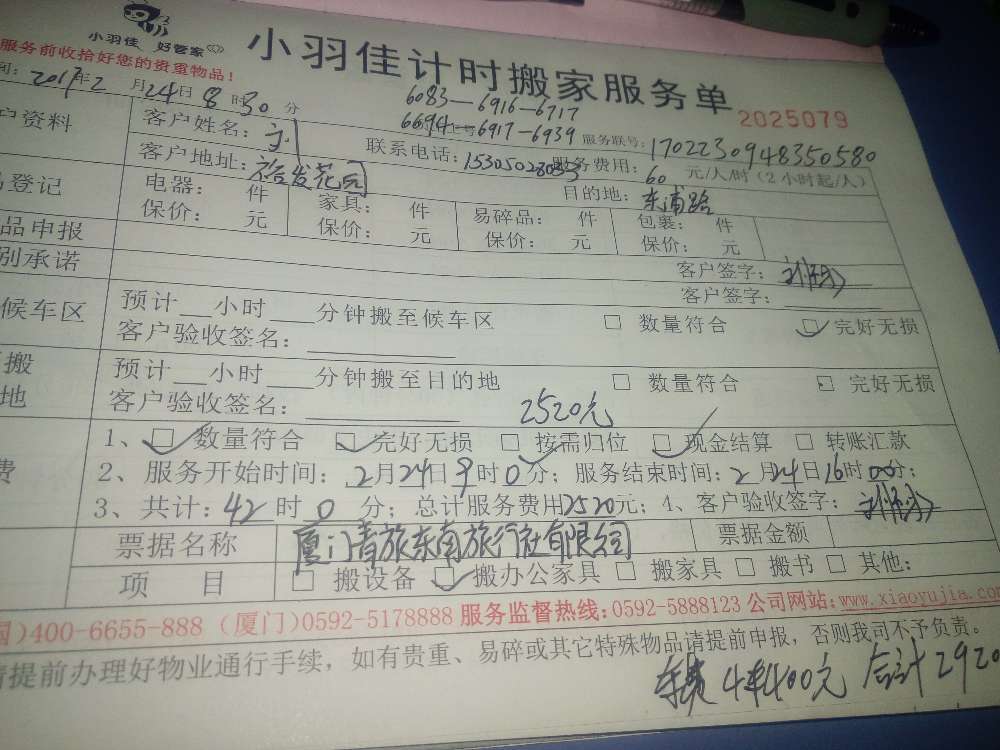 小羽佳 好管家
服务前收拾好您的贵重物品！
小羽佳计时搬家服务单
2025079
2017年2月24日8时30分
6083—6916—6717
6694—6917—6939
服务联号：1702230948350580
户资料
客户姓名：
联系电话：
服务费用：60元/人/时（2小时起/人）
客户地址：裕发花园
目的地：东浦路
品登记
电器： 件 家具： 件 易碎品： 件 包裹： 件
保价： 元 保价： 元 保价： 元 保价： 元
品申报
客户签字：
别承诺
客户签字：
候车区
预计__小时__分钟搬至候车区 □ 数量符合 □ 完好无损
客户验收签名：
搬
地
预计__小时__分钟搬至目的地 □ 数量符合 □ 完好无损
客户验收签名：
2520元
1、□ 数量符合 □ 完好无损 □ 按需归位 □ 现金结算 □ 转账汇款
费
2、服务开始时间：2月24日9时0分；服务结束时间：2月24日16时00分；
3、共计：42时0分；总计服务费用2520元；4、客户验收签字：
票据名称 厦门青旅东南旅行社有限公司 票据金额
项 目 □ 搬设备 □ 搬办公家具 □ 搬家具 □ 搬书 □ 其他：
国)400-6655-888（厦门)0592-5178888 服务监督热线：0592-5888123 公司网站：www.xiaoyujia.com
请提前办理好物业通行手续，如有贵重、易碎或其它特殊物品请提前申报，否则我司不予负责。
车费4车400元 合计2920